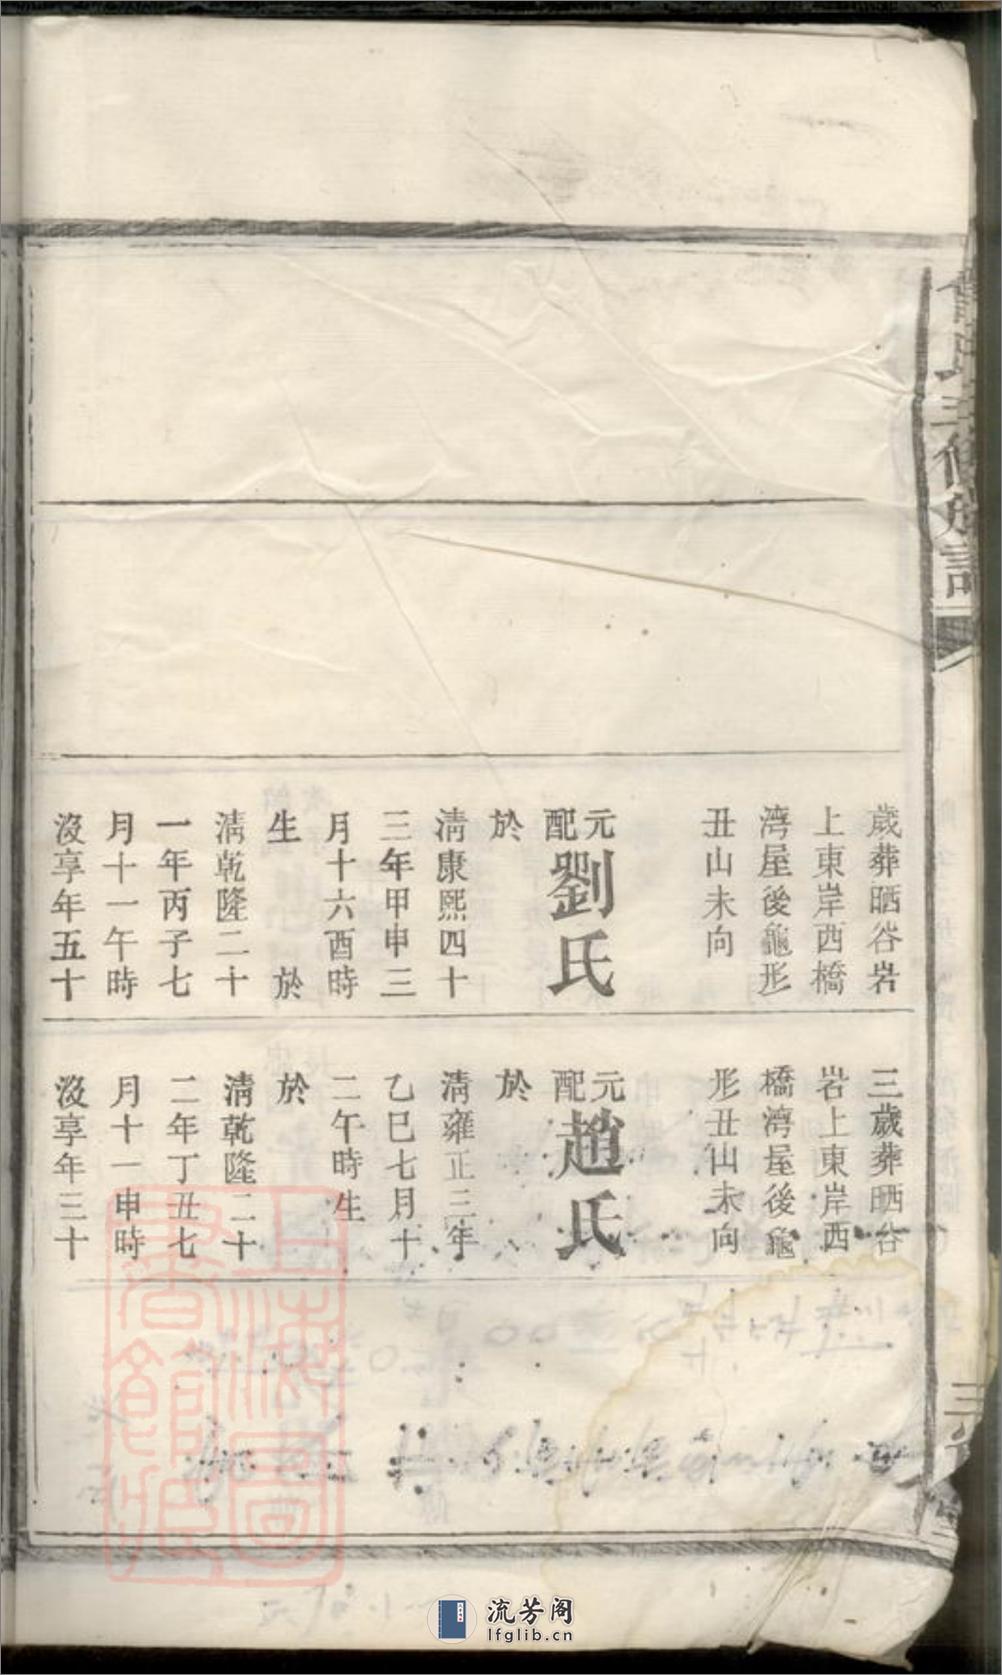 歲葬晒谷岩
上東岸西橋
湾屋後龜形
丑山未向
元配劉氏
於
清康熙四十
三年甲申三
月十六酉時
生於
清乾隆二十
一年丙子七
月十一午時
沒享年五十
三歲葬晒谷
岩上東岸西
橋湾屋後龜
形丑山未向
元配趙氏
於
清雍正三年
乙巳七月十
二午時生
於
清乾隆二十
二年丁丑七
月十一申時
沒享年三十
上海圖書館藏
流芳阁
lfglib.cn